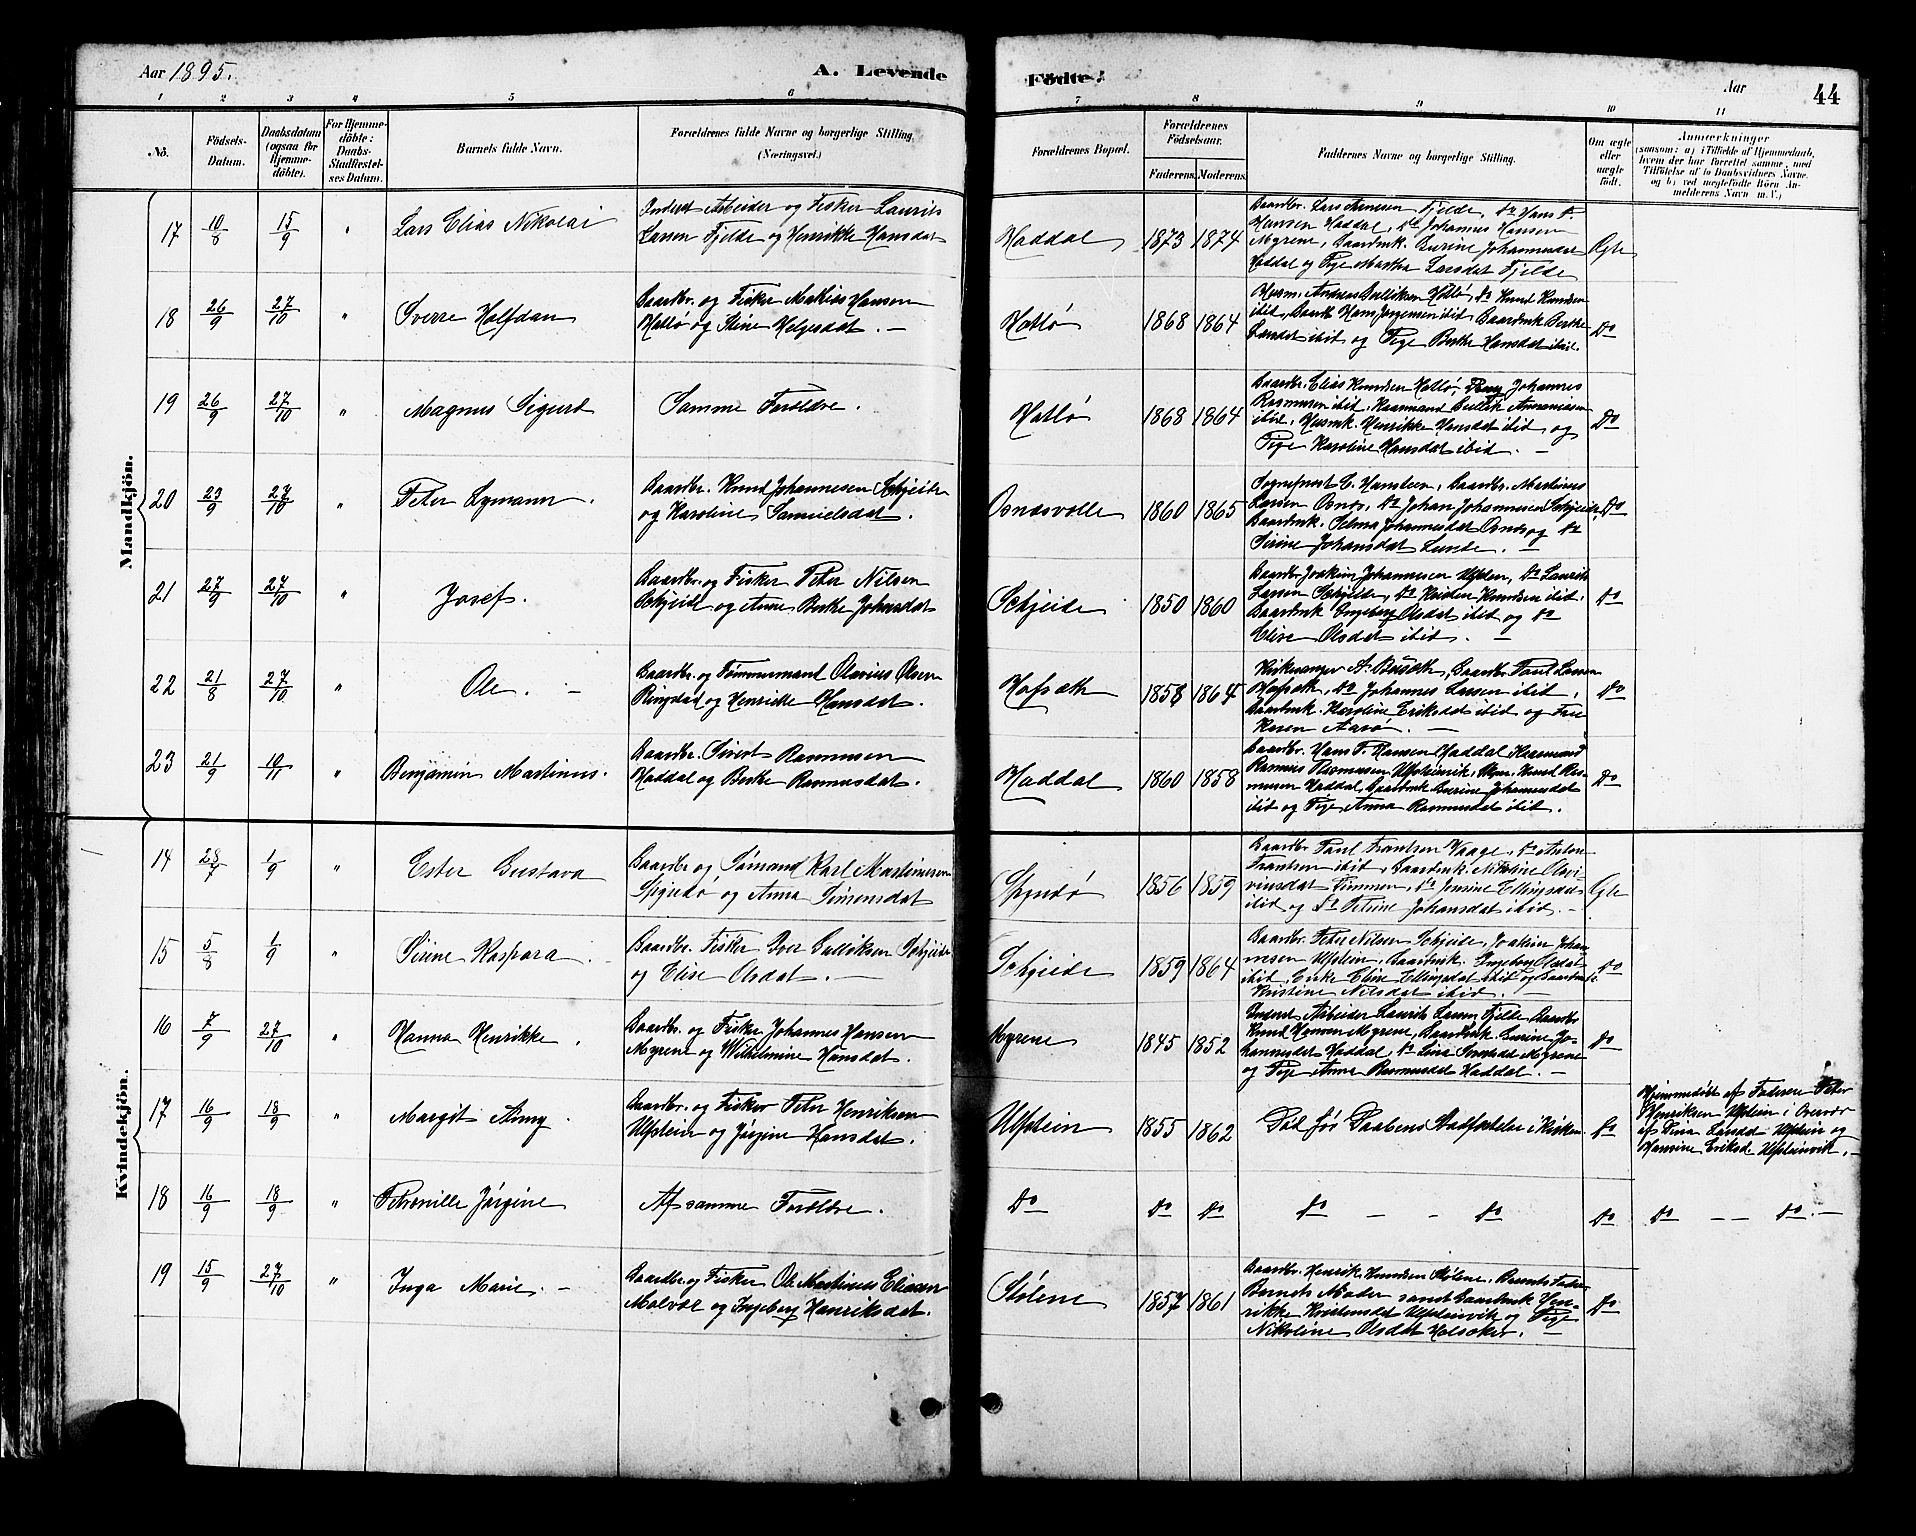 Aar 1895.
A. Levende
Födte.
Aar
44
1 2 3 4 5 6 7 8 9 10 11
No.
Födsels-Datum.
Daabsdatum (ogsaa for Hjemme-döbte).
For Hjemme-döbte: Daabs-Stadfæstel-ses Datum.
Barnets fulde Navn.
Forældrenes fulde Navne og borgerlige Stilling. (Næringsvei.)
Forældrenes Bopæl.
Forældrenes Födselsaar.
Faderens. Moderens.
Faddernes Navne og borgerlige Stilling.
Om ægte eller uægte födt.
Anmærkninger
(saasom: a) i Tilfælde af Hjemmedaab, hvem der har forrettet samme, med Tilföielse af to Daabsvidners Navne. og b) ved uægtefödte Börn Anmelderens Navn m. V.)
Mandkjön.
17 10/8 15/9 " Lars Elias Nikolai
Inderst Arbeider og Fisker Laurits
Larsen Fjelde og Henrikke Hansdat
Haddal 1873 1874
Gaardbr. Lars Arnesen Fjelde, Do Hans P.
Hansen Haddal, Do Johannes Hansen
Myrene, Gaardmk. Gurine Johannesdat
Haddal og Pige Martha Larsdat Fjelde
Ægte
18 26/9 27/10 " Sverre Halfdan
Gaardbr. og Fisker Mathias Hansen
Hatlø og Stine Helgesdat. —
Hatlø 1868 1864
Husm. Andreas Gulliksen Hatlø, Do Knud Knudsen
ibid, Gaardb Hans Jørgensen ibid, Gaardmk Berthe
Larsdat ibid og Pige Berthe Hansdat ibid.
Do
19 26/9 27/10 " Magnus Sigurd
Samme Forældre.
Hatlø 1868 1864
Gaardbr. Elias Knudsen Hatlø, Ung Johannes
Rasmussen ibid, Kaarmand Gullik Ananiassen
ibid, Husmk. Henrikke Hansdat ibid, og
Pige Karoline Hansdat ibid. —
Do
20 23/9 27/10 " Peter Lymann.
Gaardbr. Knud Johannesen Schjeide
og Karoline Samuelsdat.
Osnesvolle 1860 1865
Sognepræst C. Hansteen, Gaardbr. Martinus
Larsen Osnes, Do Johan Johannesen Schjeide,
Gaardmk. Selma Johannesdat Osnes og Do
Sirine Johansdat Lunde. —
Do
21 27/9 27/10 " Josef.
Gaardbr. og Fisker Peter Nilsen
Schjeide og Anne Berthe Johansdat
Schjeide 1850 1860
Gaardbr Joakim Johannesen Ulstein, Do Laurits
Larsen Schjeide, Do Kristen Knudsen ibid,
Gaardmk Ingeborg Olsdat ibid og Do
Elise Olsdat ibid. —
Do
22 21/8 27/10 " Ole. —
Gaardbr. og Tømmermand Olavius Olsen
Ringstad og Henriette Hansdat.
Hofsæth 1858 1864
Kirkesanger A. Busæth, Gaardbr Paul Larsen
Hofsæth, Do Johannes Larsen ibid,
Gaardmk. Karoline Eriksdat ibid og Frue
Karen Aarø. —
Do
23 21/9 10/11 " Benjamin Martinus.
Gaardbr. Sivert Rasmussen
Haddal og Berthe Rasmusdat.
Haddal 1860 1858
Gaardbr. Hans P. Hansen Haddal, Kaarmand
Rasmus Rasmussen Ulsteinvik, Husm. Knud Ras-
mussen Haddal, Gaardmk Gurine Johannesdat
ibid og Pige Anna Rasmusdat ibid.
Do
Kvindekjön.
14 28/7 1/9 " Ester Gustava
Gaardbr og Sømand Karl Martinussen
Spjudø og Anna Simensdat
Spjudø 1856 1859
Gaardbr Paul Frantsen Vaage, Do Anton
Frantsen ibid, Gaardmk. Nikoline Olavi-
vusdat Dimmen, Do Jensine Ellingsdat
ibid og Do Petrine Johansdat ibid. —
Ægte
15 5/8 1/9 " Sirine Kaspara.
Gaardbr. Fisker Iver Gulliksen Schjeide
og Elise Olsdat. —
Schjeide 1859 1864
Gaardbr. Peter Nilsen Schjeide, Joakim Johan-
nesen Ulstein, Gaardmk. Ingeborg Olsdat
ibid, Enke Elise Ellingsdat ibid og Gaardmk
Kristine Nilsdat ibid. —
Do
16 7/9 27/10 " Hanna Henrikke.
Gaardbr. og Fisker Johannes Hansen
Myrene og Wilhelmine Hansdat.
Myrene 1845 1852
Inderst Arbeider Laurits Larsen Fjelde, Gaardbr
Knud Hansen Myrene, Gaardmk Gurine Jo-
hannesdat Haddal, Do Lina Iversdat Myrene
og Pige Anna Rasmusdat Haddal. —
Do
17 16/9 18/9 " Margit Anny.
Gaardbr. og Fisker Peter Henriksen
Ulstein og Jørgine Hansdat.
Ulstein 1855 1862
Død før Daabens Stadfæstelse i Kirken
Do
Hjemmedøbt af Faderen Peter
Henriksen Ulstein i Overvær
af Lina Larsdat Ulstein og
Hansine Eriksd. Ulsteinvik. —
18 16/9 18/9 " Petronille Jørgine
Af samme Forældre.
Do Do Do Do — – Do Do Do — — Do. —
19 15/9 27/10 " Inga Marie. —
Gaardbr og Fisker Ole Martinus Eliassen
Molvær og Ingeborg Henriksdat.
Støline 1857 1861
Gaardbr. Henrik Knudsen Støline, Barnets Fader
Barnets Moder samt Gaardmk Hen-
rikke Kristensdat Ulsteinvik og Pige
Nikoline Olsdat Holsøker. —
Do